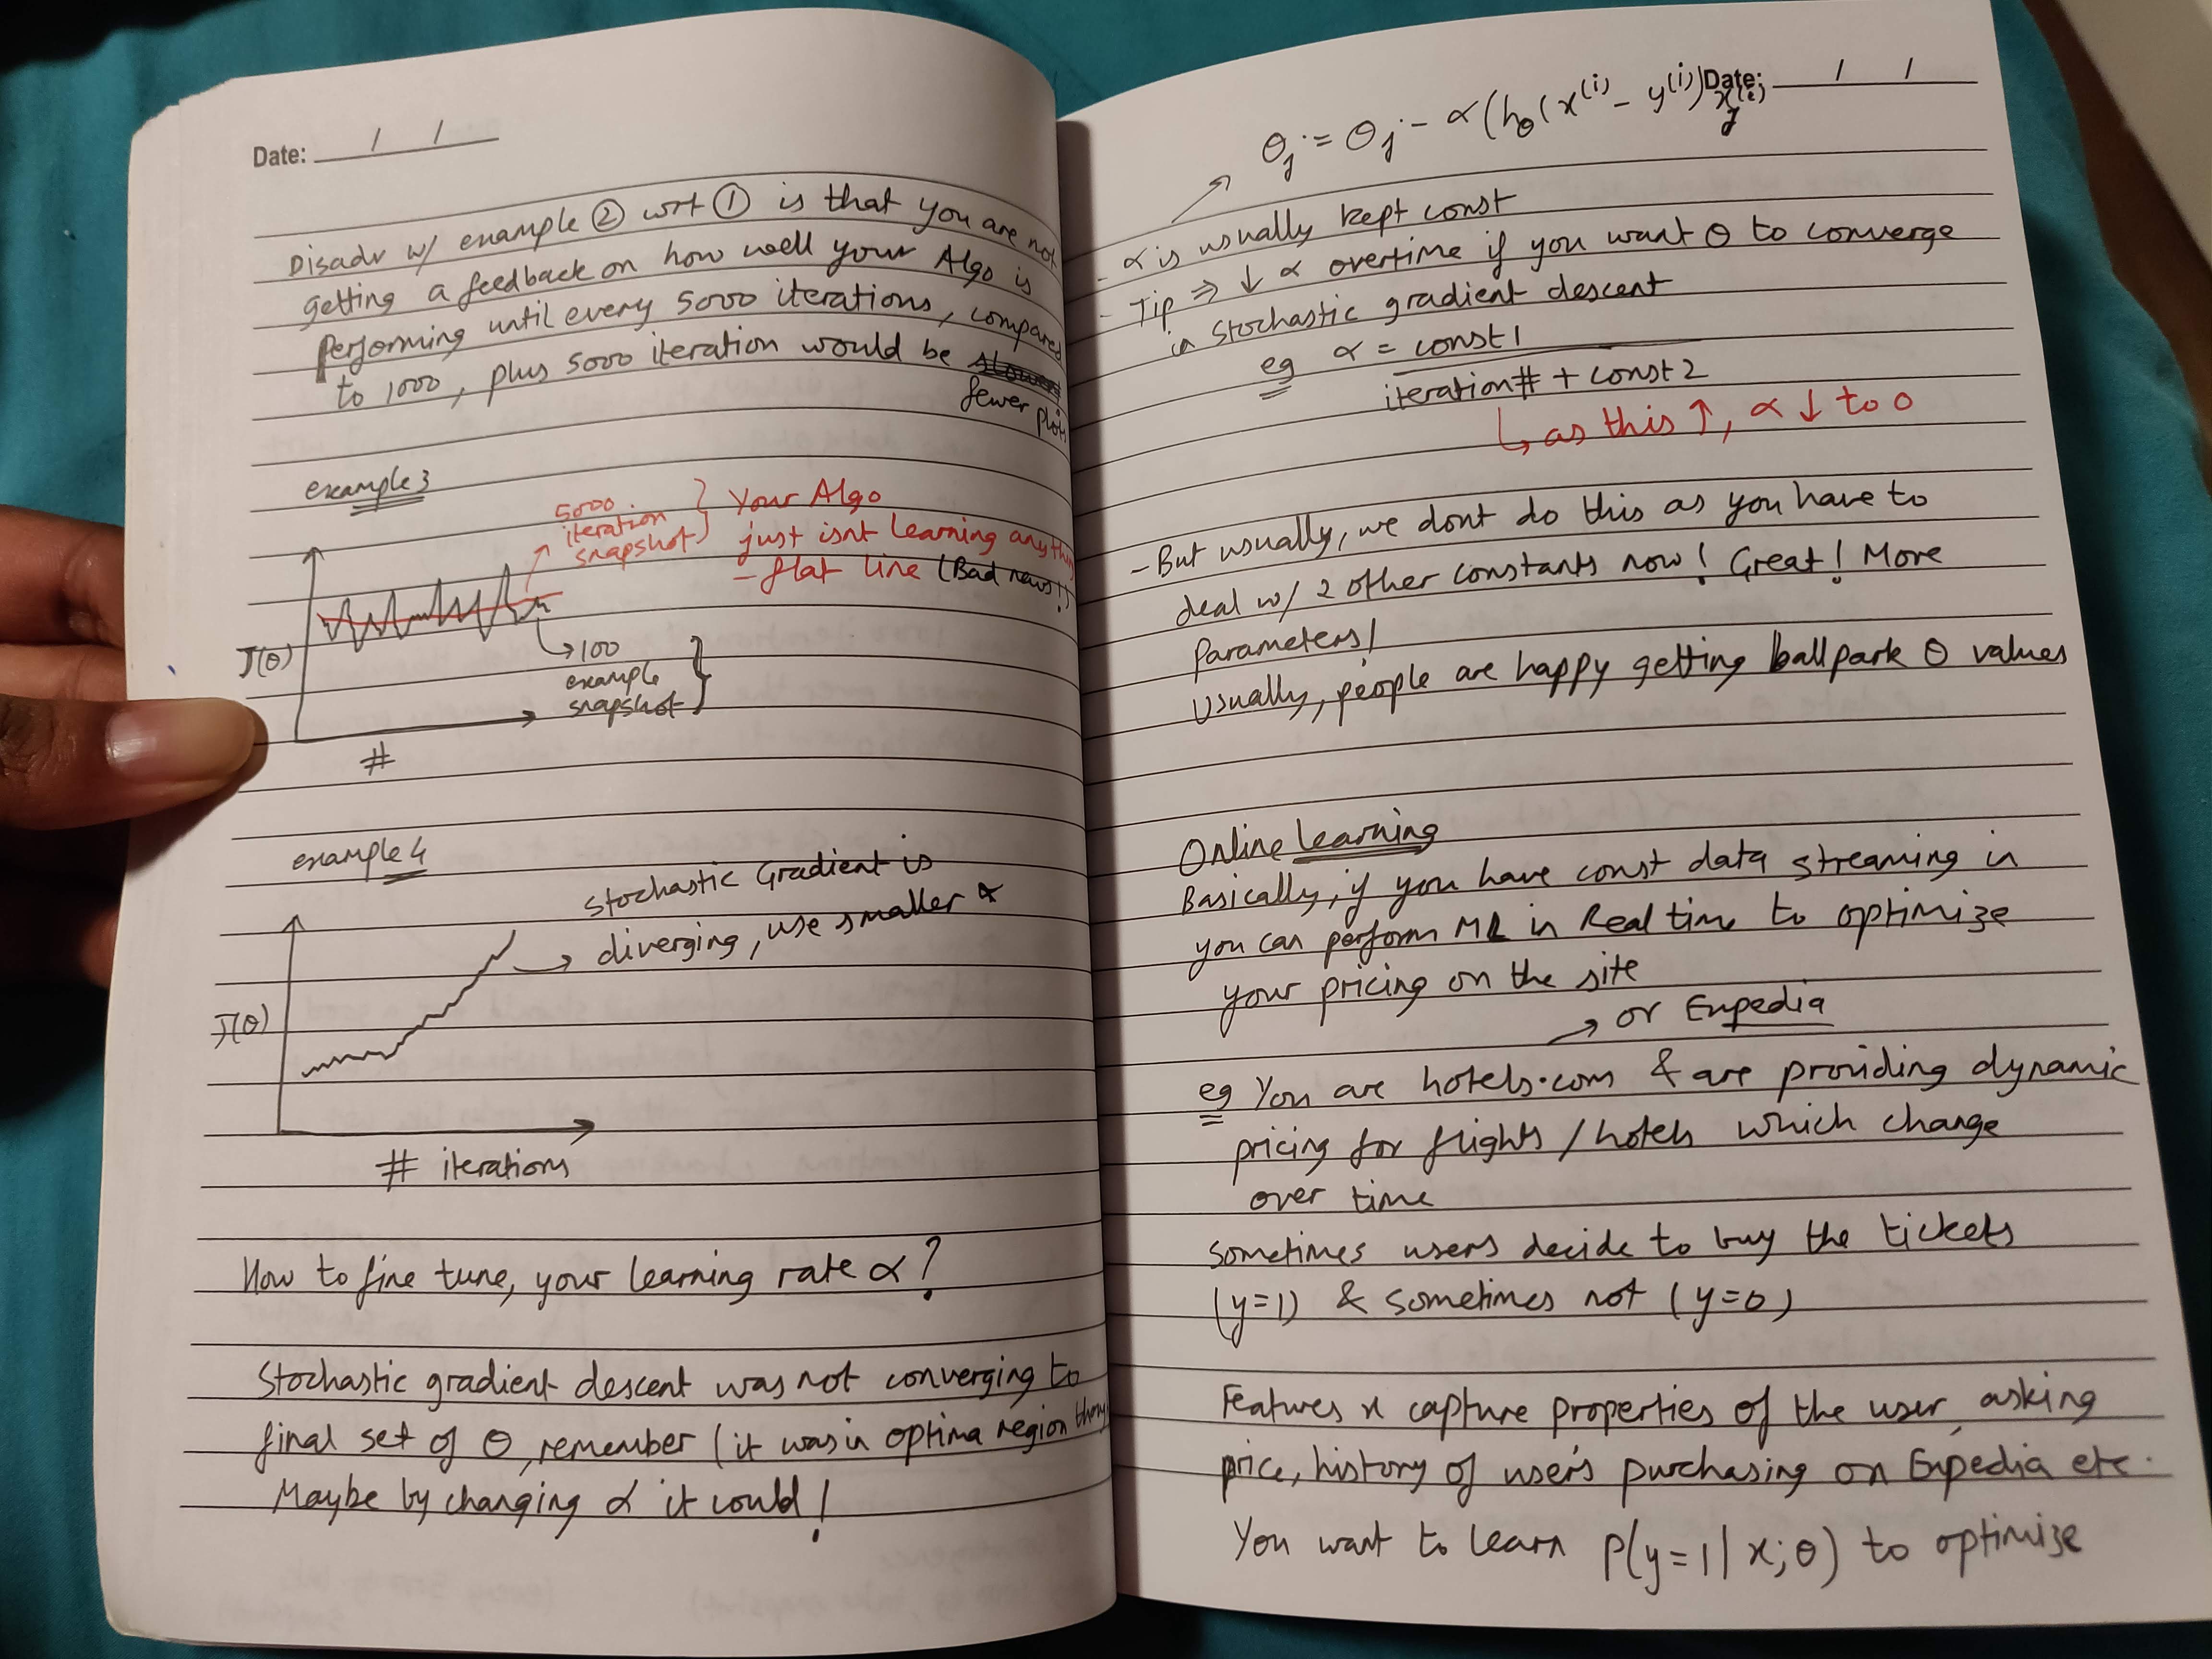 Date: / /
Disadv w/ example ② wrt ① is that you are not
getting a feedback on how well your Algo is
performing until every 5000 iterations, compared
to 1000, plus 5000 iteration would be
fewer plots
example 3
5000
iteration
snapshot
Your Algo
just isnt learning anything
- flat line (Bad news!!)
J(θ)
→100
example
snapshot
#
example 4
Stochastic Gradient is
diverging, use smaller α
J(θ)
# iterations
How to fine tune, your learning rate α?
Stochastic gradient descent was not converging to
final set of θ, remember (it was in optima region
Maybe by changing α it could!
Date: / /
θj := θj - α(hθ(x^(i) - y^(i))xj^(i)
- α is usually kept const
- Tip ⇒ ↓ α overtime if you want θ to converge
in stochastic gradient descent
eg α = const1
iteration# + const2
↳ as this ↑, α ↓ to 0
- But usually, we dont do this as you have to
deal w/ 2 other constants now! Great! More
Parameters!
Usually, people are happy getting ballpark θ values
Online learning
Basically, if you have const data streaming in
you can perform ML in Real time to optimize
your pricing on the site
→ or Expedia
eg You are hotels.com & are providing dynamic
pricing for flights / hotels which change
over time
Sometimes users decide to buy the tickets
(y=1) & sometimes not (y=0)
Features x capture properties of the user, asking
price, history of users purchasing on Expedia etc.
You want to learn p(y=1|x;θ) to optimize